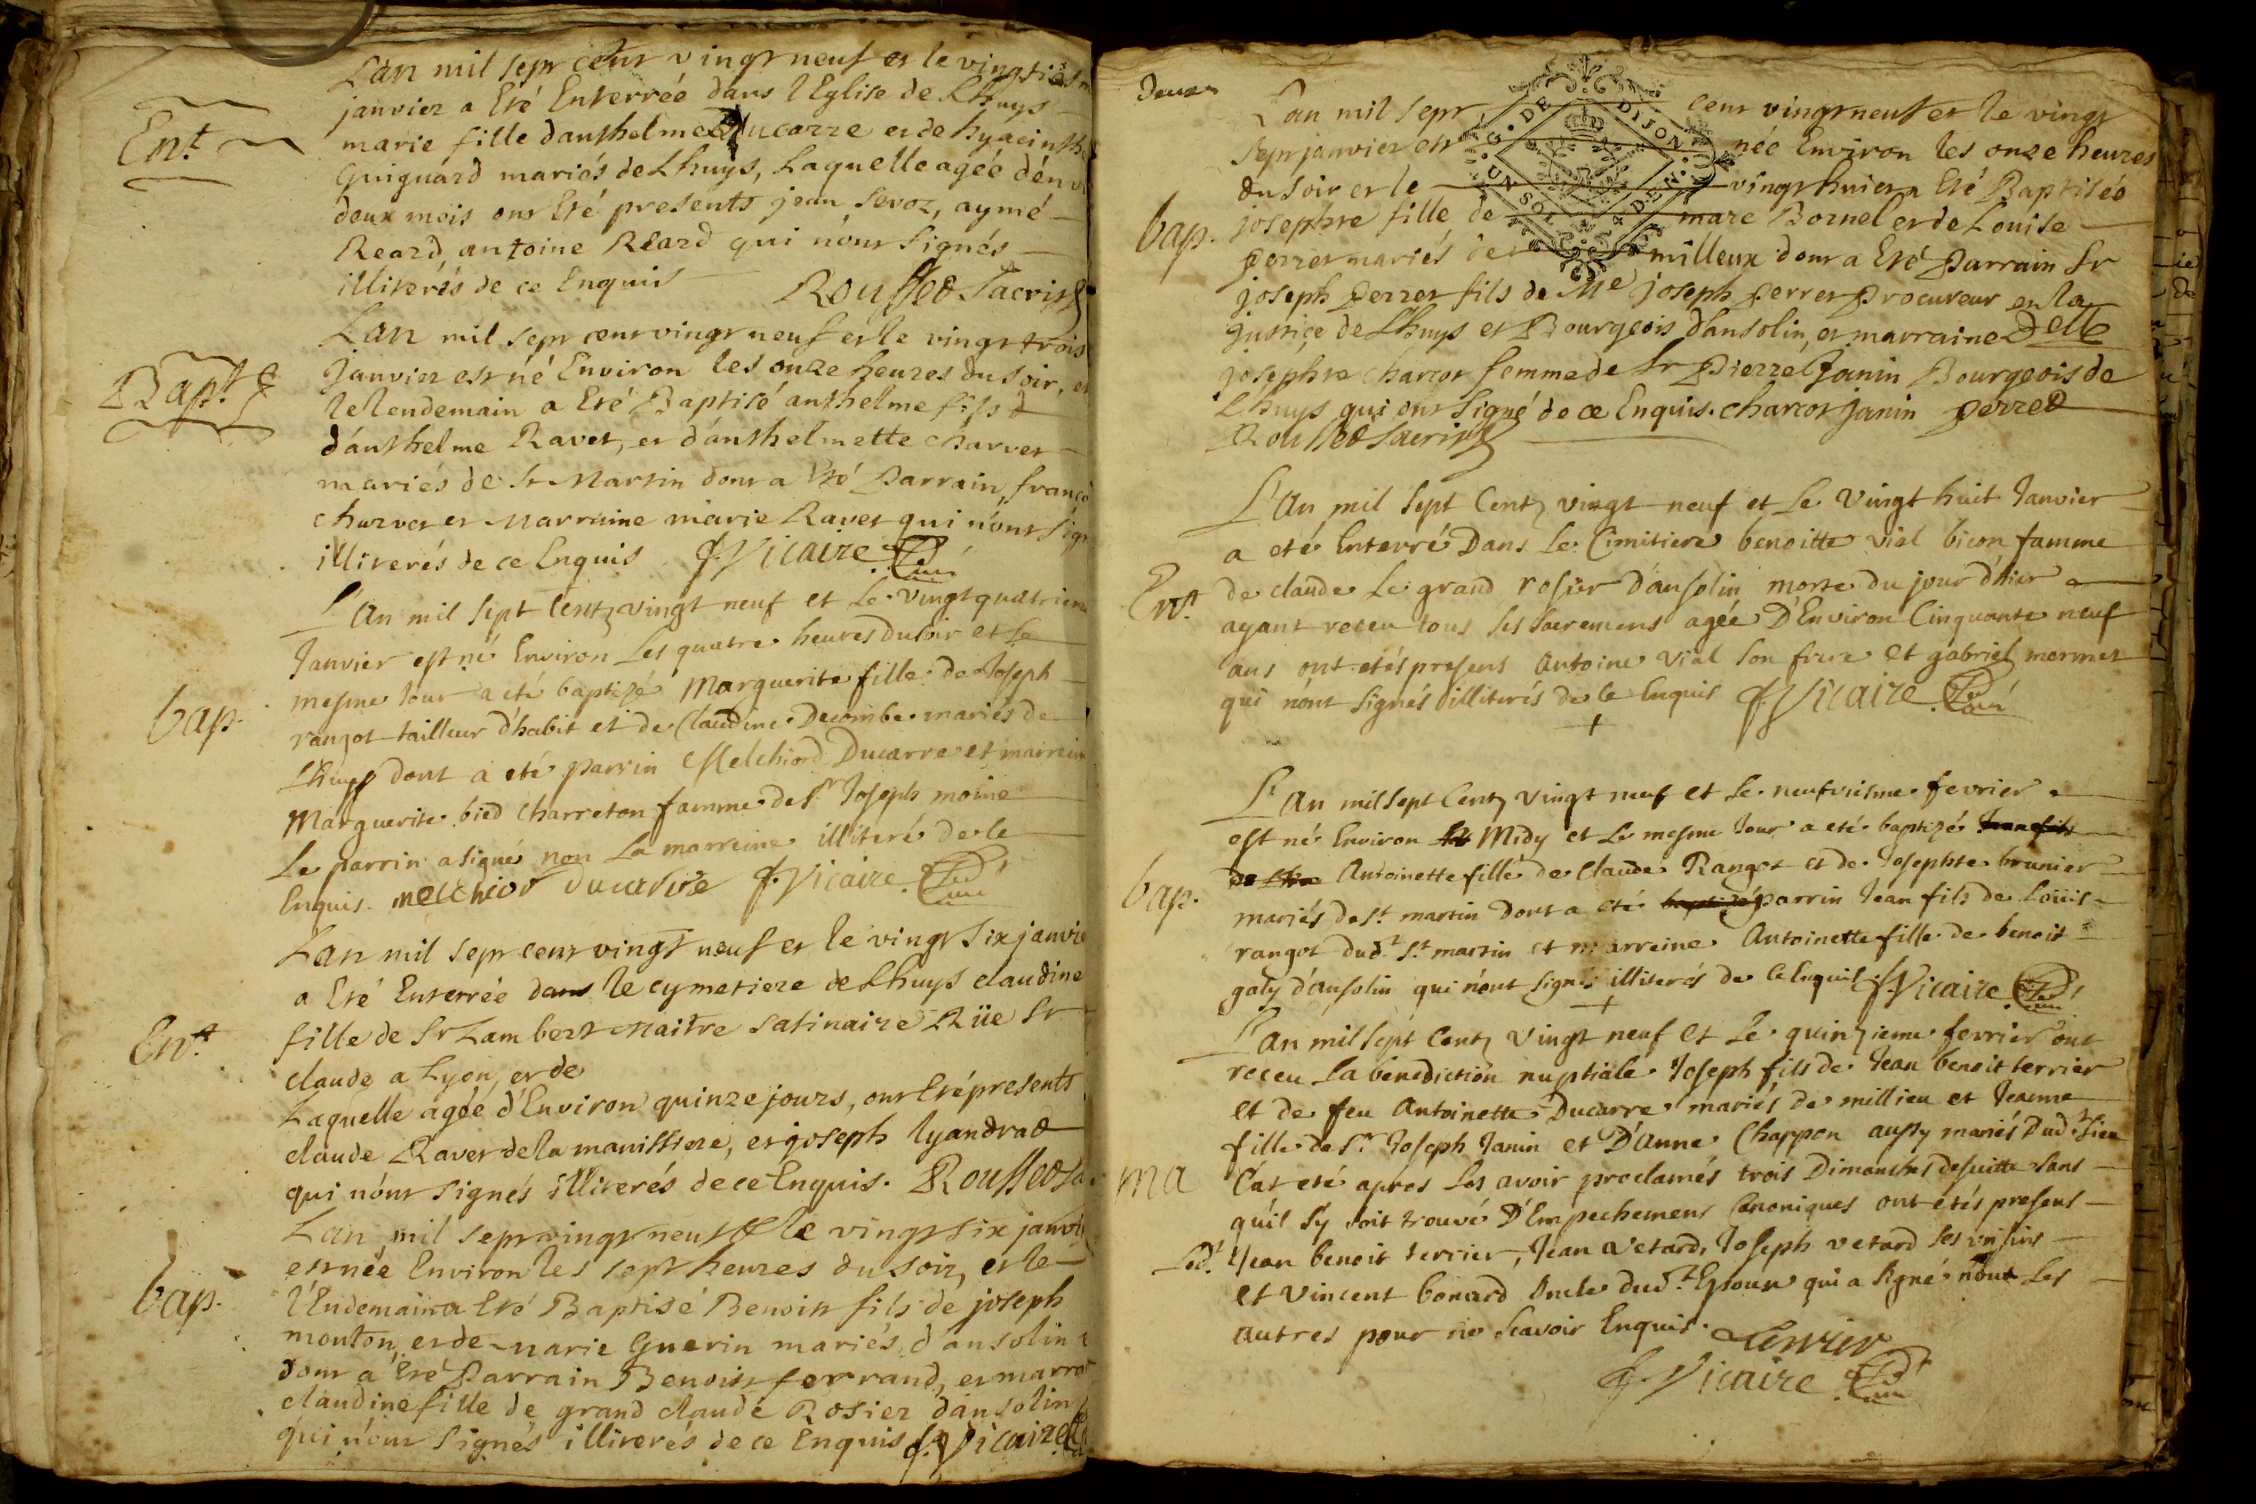 Lan mil sept cent vingt neuf et le vingtiesme
janvier a Eté Enterrée dans lEglise de Lhuys
Ent
marie fille danthelme Ducarre et de hyacinthe
Guiguard mariés de Lhuys, Laquelle agée dénv
deux mois ont Eté presents jean sevoz, aymé
Reard, antoine Reard qui nónt signés
illiterés de ce Enquis Rousset Sacrist
Lan mil sept cent vingt neuf et le vingt trois
Bapt
Janvier est né Environ les onze heures du soir, et
le lendemain a Eté Baptisé anthelme fils
dánthelme Ravet, et dánthelmette charvet
mariés de St Martin dont a Eté Parrain, franç
charvet et Marraine marie Ravet qui nónt sign
illiterés de ce Enquis J. Vicaire Curé
L'An mil sept Cent vingt neuf et Le vingt quatriem
Janvier est né Environ Les quatre heures du soir et Le
bap.
mesme Jour a eté baptizé Marguerite fille de Joseph
rangot tailleur d'habit et de Claudine Decombe mariés de
Lhuys dont a eté parrin Melchiord Ducarre et marrein
Marguerite bied Charreton famme de Sr Joseph moine
Le parrin a signé non La marreine illiteré de Ce
Enquis. melchior ducarre J. Vicaire Curé
Lan mil sept cent vingt neuf et le vingt six janvie
a Eté Enterrée dans le cymetiere de Lhuys claudine
Ent
fille de Sr Lambert Maitre satinaire Rüe St
claude a Lyon, et de
Laquelle agée d'Environ quinze jours, ont Eté presents
claude Ravet de la manissiere, et joseph lyandrat
qui nónt signés illiterés de ce Enquis. Rousset Sa
Lan mil sept vingt neuf & le vingt six janvi
est née Environ les sept heures du soir, et le
bap.
l'Endemain a Eté Baptisé Benoist fils de joseph
mouton, et de Marie Guerin mariés d'ansolin
dont a Eté Parrain Benoist ferrand, et marra
claudine fille de grand claude Rosier dansolin
qui nónt signés illiterés de ce Enquis J. Vicaire
Deux
Lan mil sept cent vingt neuf et le vingt
G. DE DIJON
UN SOL 4 DEN.
sept janvier est née Environ les onze heures
du soir et le vingt huict a Eté Baptisée
bap.
josephte fille de marc Bornel et de Louise
perret mariés de milleux dont a Eté Parrain Sr
joseph perret fils de Me joseph perret Procureur en la
justice de Lhuys et Bourgeois d'ansolin, et marraine Delle
josephte charcot femme de Sr Pierre Janin Bourgeois de
Lhuys qui ont signé de ce Enquis. charcot janin perret
Rousset Sacrist
L'An mil Sept Cent vingt neuf et Le vingt huit Janvier
a eté Enterré Dans Le Cimitiere benoitte vial bicon famme
Ent
de claude Le grand rosier d'ansolin morte du jour d'hier
ayant receu tous ses sacremens agée D'Environ Cinquante neuf
ans ont etés presens Antoine vial son frere et gabriel mermet
qui nónt signés illiterés de Ce Enquis J. Vicaire Curé
L'An mil sept Cent vingt neuf et Le neufviesme fevrier
est né Environ Midy et Le mesme Jour a eté baptizé Jean fils
bap.
de Antoinette fille de Claude Rangot et de Josephte brunier
mariés de St. martin Dont a eté baptizé parrin Jean fils de Loüis
rangot dud. St. martin et marreine Antoinette fille de benoit
galy d'ansolin qui nónt signés illiterés de Ce Enquis J. Vicaire Curé
L'An mil sept Cent vingt neuf et Le quinzieme fevrier ont
receu La benediction nuptiale Joseph fils de Jean benoit terrier
et de feu Antoinette Ducarre mariés de millieu et Jeanne
fille de Sr Joseph Janin et D'Anne Chappon aussy mariés Dud. Lieu
ma
C'at eté apres Les avoir proclamés trois Dimanches desuitte sans
qu'il s'y soit trouvé D'Empechemens Canoniques ont etés presens
Led. Jean benoit terrier, Jean vetard, Joseph vetard ses voisins
et Vincent bonard oncle dud. Epoux qui a signé non Les
autres pour ne scavoir Enquis. Terrier
J. Vicaire Curé